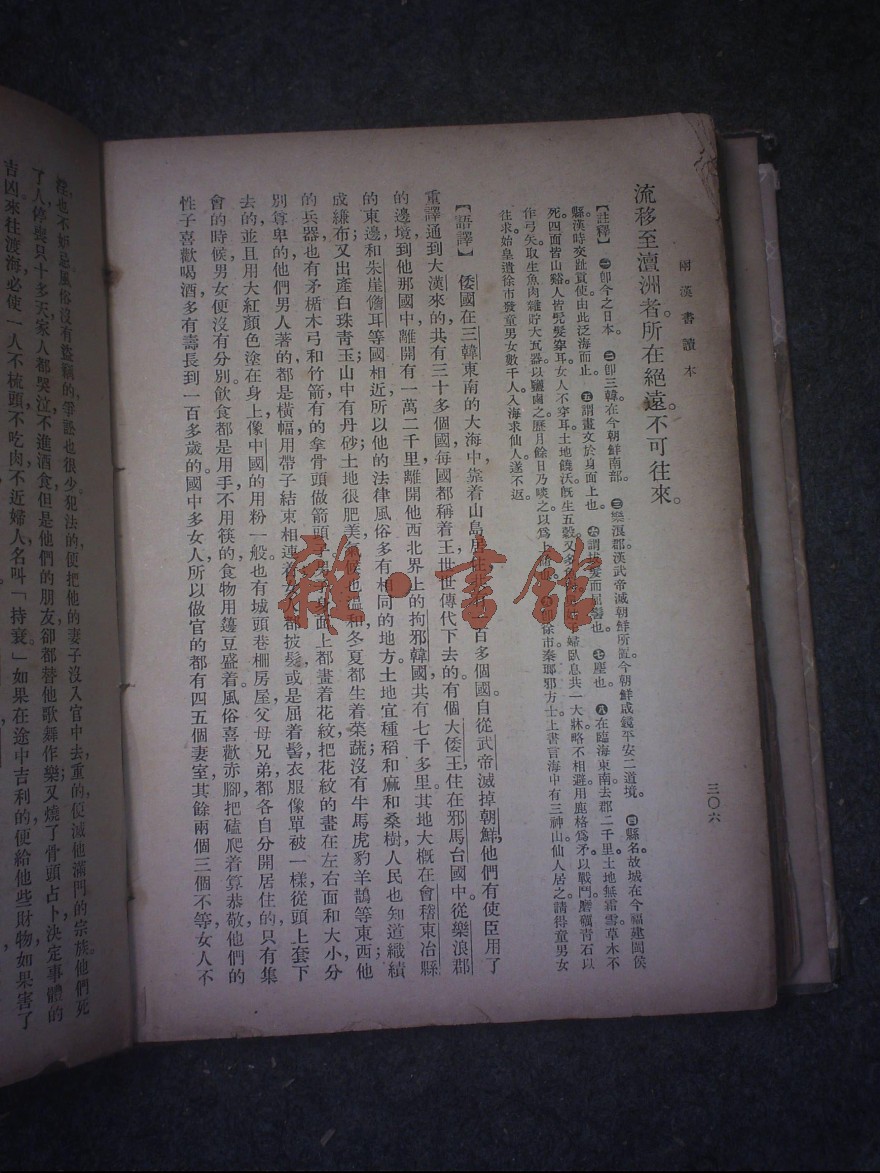 兩漢書讀本
三〇六
流移至澶洲者。所在絕遠。不可往來。
【註釋】㊀卽今之日本。㊁卽三韓在今朝鮮南部。㊂樂浪郡漢武帝滅朝鮮所置。今朝鮮咸鏡平安二道境。㊃縣名。故城在今福建閩侯
縣漢時交趾貢使由此泛海而止。㊄謂畫文於身面上也。㊅謂拔髮而屈髻也。㊆塵也。㊇在臨海東南。去郡二千里。土地無霜雪。草木不
死。四面皆山谿。人皆髠髮穿耳。女人不穿耳。土地饒沃。旣生五穀。又多
婦臥息共一大牀。略不相避。用鹿格爲矛以戰鬥。磨礪靑石以
作弓矢。取生魚肉雜貯大瓦器。以鹽鹵之。歷月餘日乃啖之。以爲上
卽徐市。秦瑯邪方士。上書言海中有三神山仙人居之。請得童男女
往求。始皇遣徐市發童男女數千人。入海求仙人。遂不返。
【語譯】倭國在三韓東南的大海中，靠着山島居住
百多個國。自從武帝滅掉朝鮮，他們有使臣用了
重譯通到大漢來的，共有三十多個國，每國都稱着王，世世傳代下去的。有個大倭王，住在邪馬台國中。從樂浪郡
的邊境到他那國中，離開有一萬二千里，離開他西北界上的拘邪韓國，共有七千多里。其地大槪在會稽東冶縣
的東邊，和朱崖儋耳等國相近，所以他的法律風俗，多有相同的地方。土地宜種稻和麻和桑樹，人民也知道織績，
成縑布；又出產白珠靑玉，山中有丹砂；土地很肥美，氣候也溫和，冬夏都生着菜蔬；沒有牛馬虎豹羊鵲等東西；他
的兵器，也有矛楯木弓和竹箭，有的拿骨頭做箭頭；男
身面上都畫着花紋，把花紋的畫在左右面和大小，分
別尊卑的；他們男人著的，都是橫幅，用帶子結束相連着；女人都披髮，或是屈着髻，衣服像單被一樣，從頭上套下
去的；並且用大紅顏色塗在身上，像中國的用粉一般；也有城頭巷柵房屋；父母兄弟，都各自分開居住的，只有集
會的時候，男女便沒有分別。飮食都是用手，不用筷的，食物用籩豆盛着；風俗喜歡赤腳，把磕爬着算恭敬，他們的
性子喜歡喝酒；多有壽長到一百多歲的。國中多女人，所以做官的，都有四五個妻室，其餘兩個三個不等；女人不
淫，也不妒忌。風俗沒有盜竊的，爭訟也很少。犯法的，便把他的妻子沒入官中去；重的，便滅他滿門的宗族。他們死
了人，停喪只十多天，家人都哭泣，不進酒食；但是他們的朋友，卻都替他歌舞作樂；又燒了骨頭占卜，決定事體的
吉凶。來往渡海，必使一人不梳頭，不吃肉，不近婦人，名叫「持衰」；如果在途中吉利的，便給他些財物；如果害了